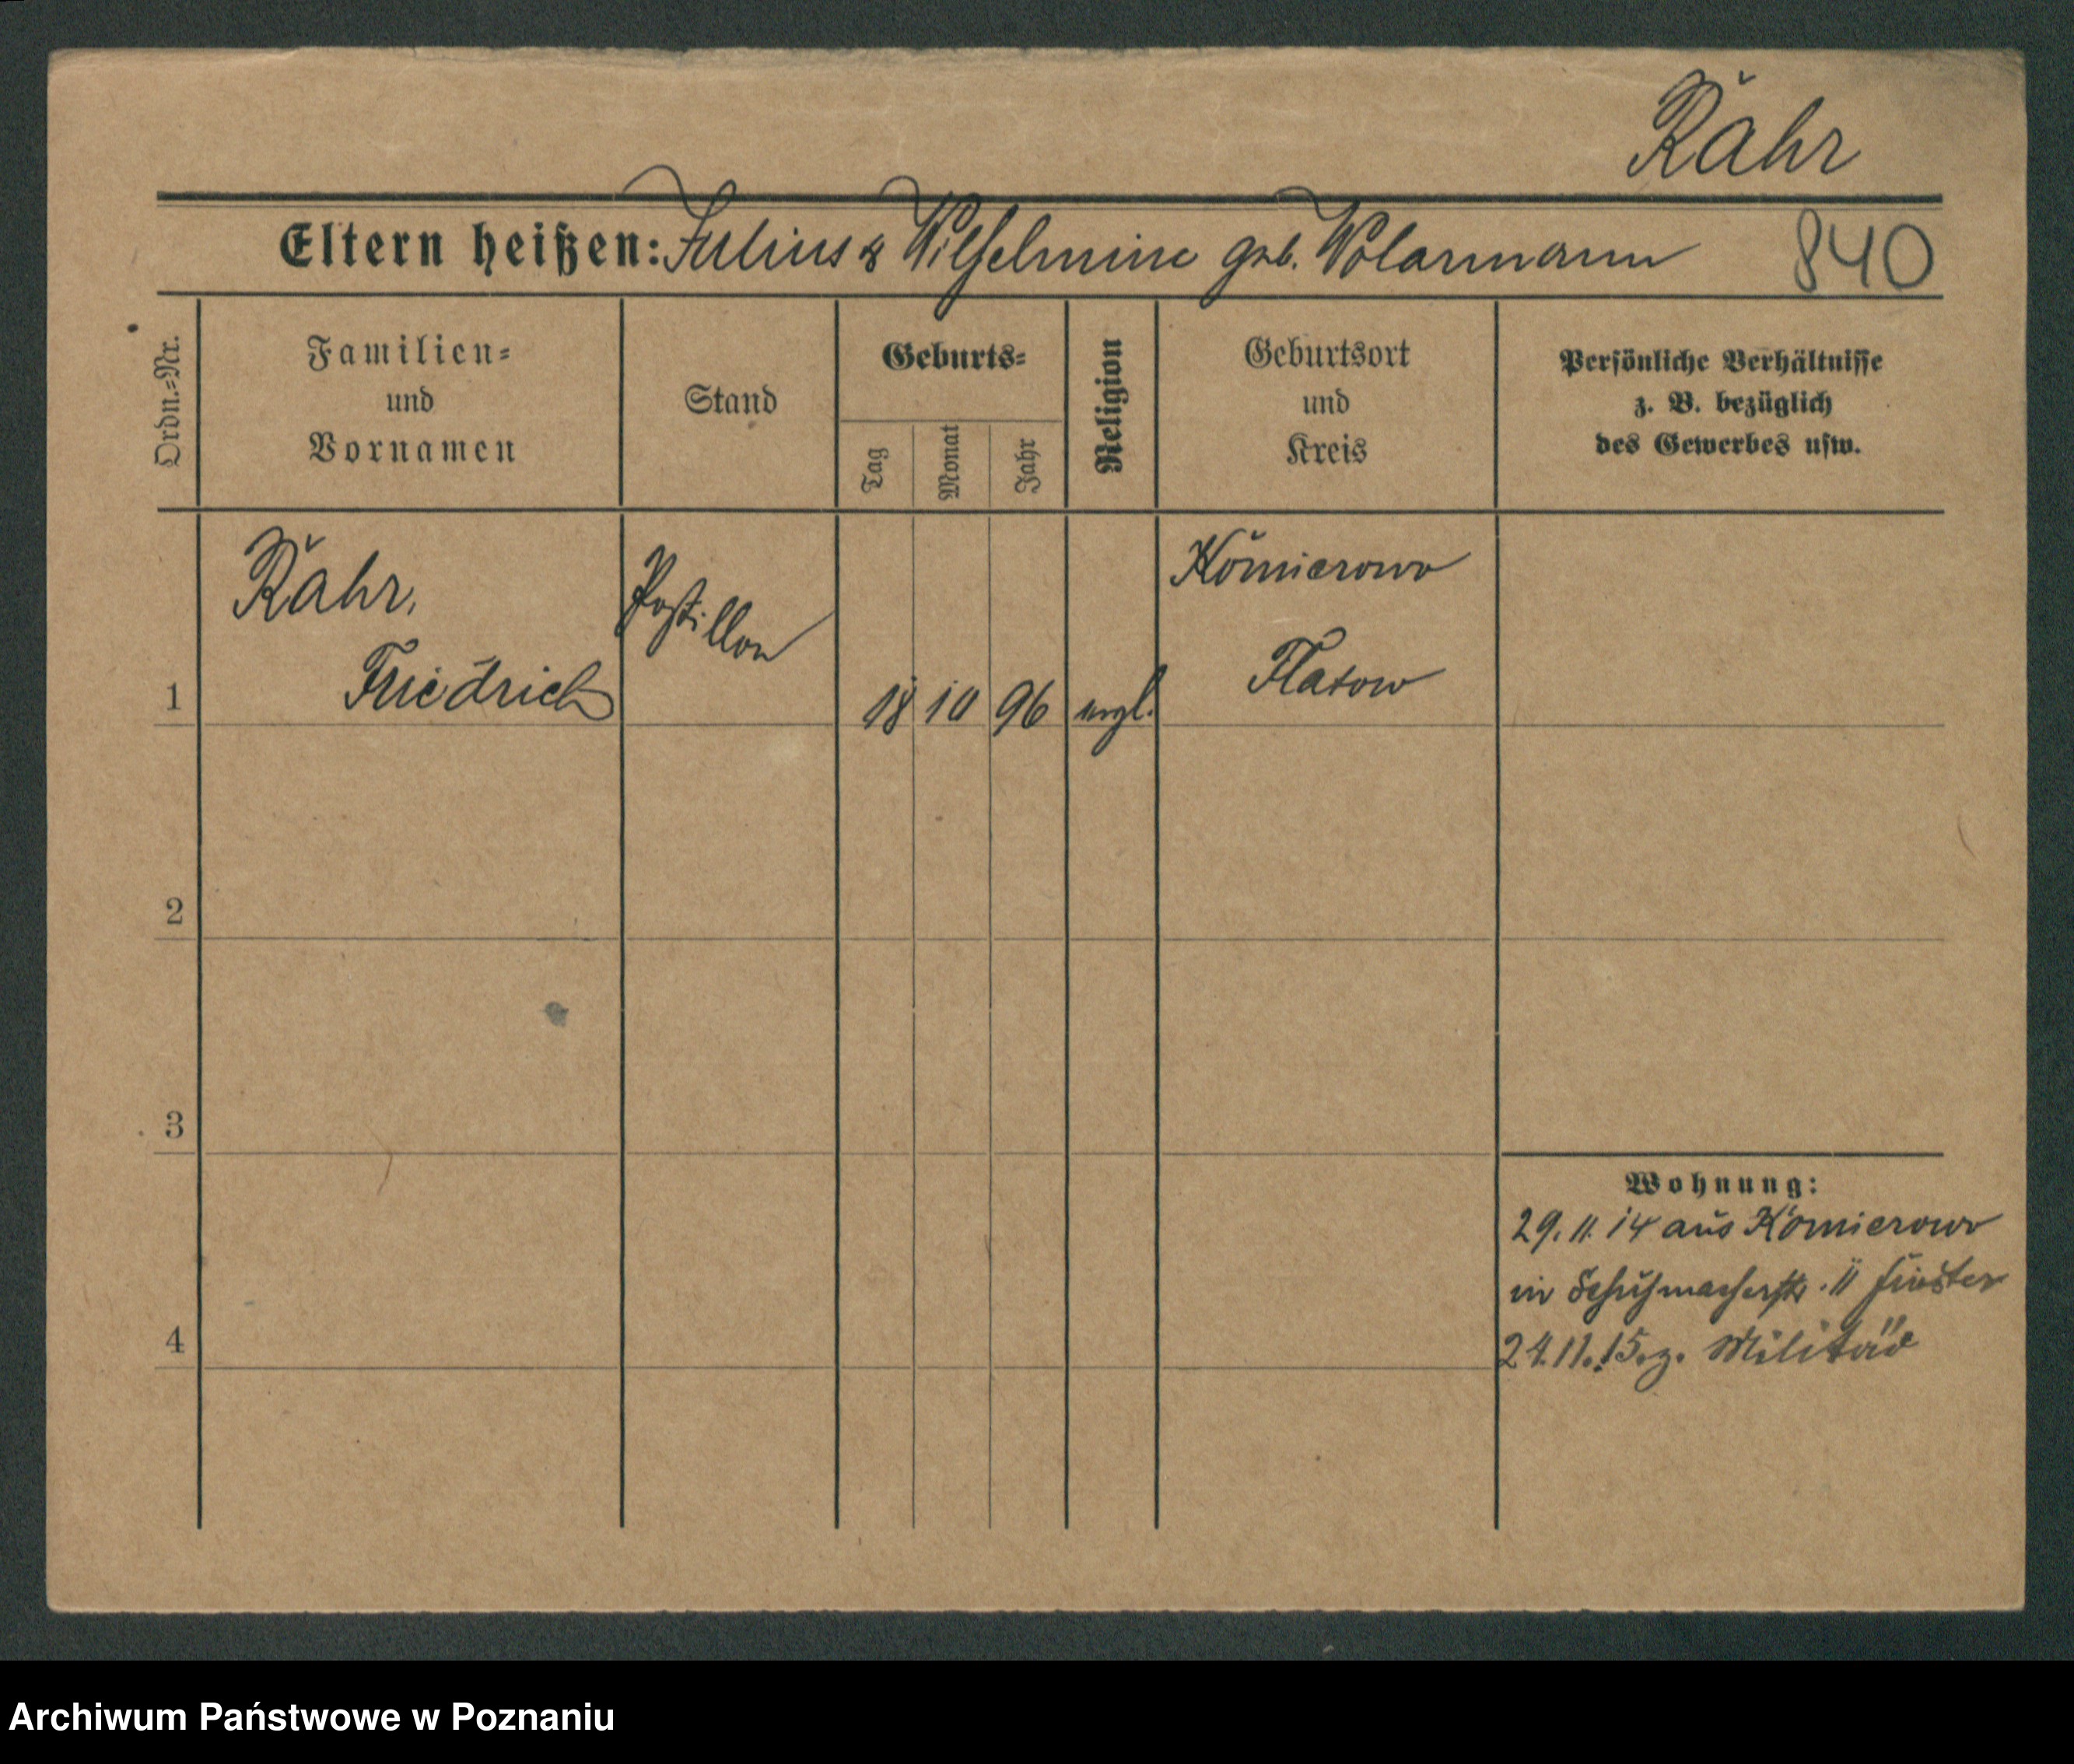 Rähr
Eltern heißen: Julius & Wilhelmine geb. Wolarmann 840
Ordn.-Nr.
Familien-
und
Vornamen
Stand
Geburts-
Tag
Monat
Jahr
Religion
Geburtsort
und
Kreis
Persönliche Verhältnisse
z. B. bezüglich
des Gewerbes usw.
1
Rähr,
Friedrich
Postillon
18 10 96
evgl.
Komierowo
Flatow
2
3
4
Wohnung:
29.11.14 aus Komierowo
in Schuhmacherstr. 11
24.11.15. z. Militär
Archiwum Państwowe w Poznaniu